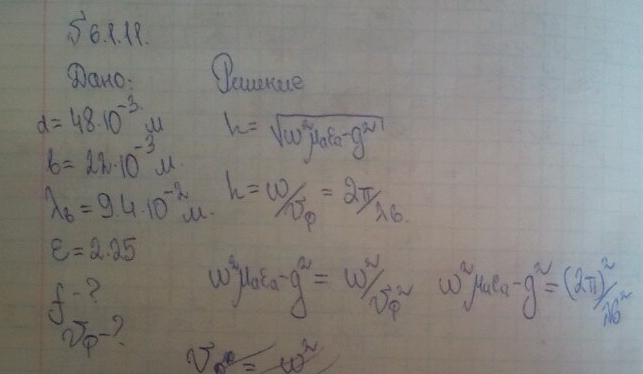 № 6.1.11.
Дано:
a = 48·10⁻³ м
b = 22·10⁻³ м.
λв = 9.4·10⁻² м.
ε = 2.25
f - ?
Vф - ?
Решение
h = √(ω²μaεa - g²)
h = ω/Vф = 2π/λв.
ω²μaεa - g² = ω²/Vф²
ω²μaεa - g² = (2π)²/λв²